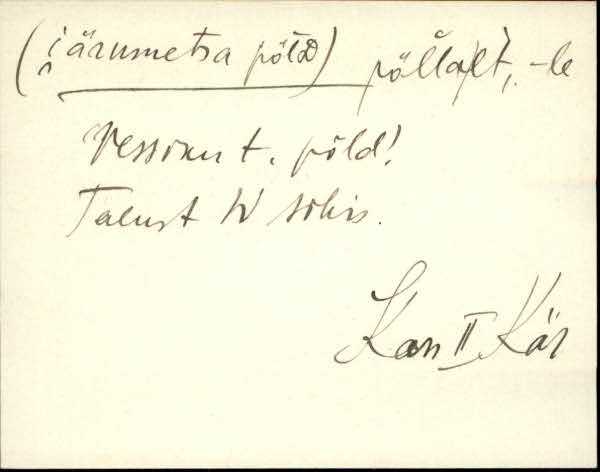 (järumetsa põld) põlla|lt, -le
Vessoru t. põld!
Talust W sihis.
Kan II Kär